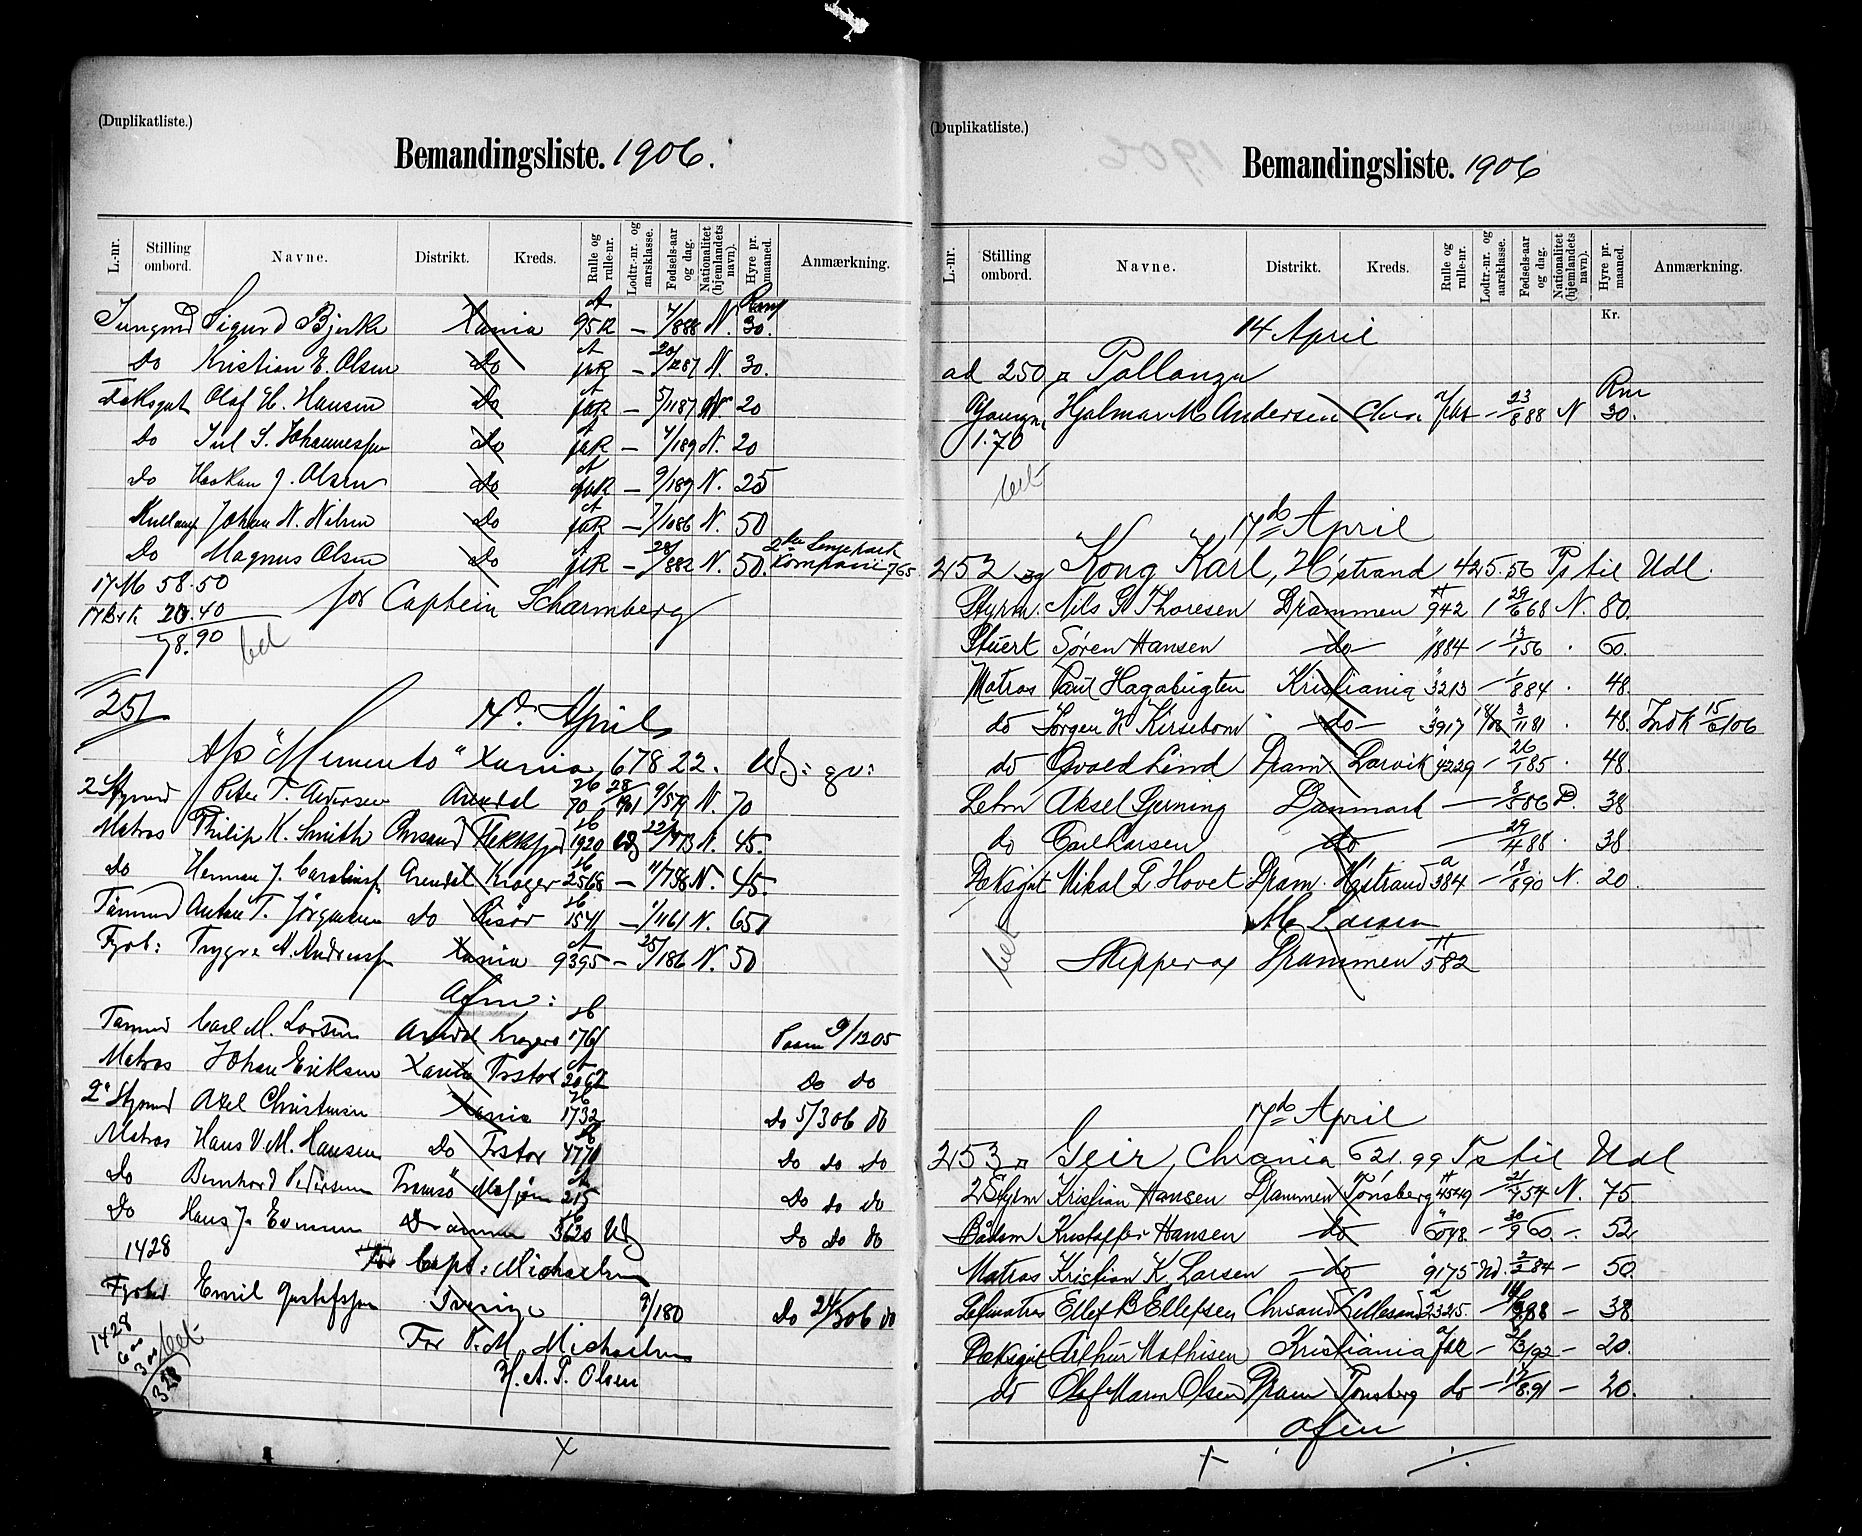 (Duplikatliste.)
Bemandingsliste. 1906.
L.-nr. Stilling ombord. Navne. Distrikt. Kreds. Rulle og rulle-nr. Lodtr.-nr. og aarsklasse. Fødsels-aar og dag. Nationalitet (hjemlandets navn). Hyre pr. maaned. Anmærkning.
Jungmd Sigurd Bjerke Xania A 95R — 888 N. 30.
Do Kristian E. Olsen Do A — 20/1287 N. 30.
Dæksgut Olaf H. Hansen Do A — 5/1187 N 20
Do Jul S. Johannessen Do A — 4/189 N. 20
Do Haakon J. Olsen Do A — 9/189 N. 25
Kullemp Johan N. Nilsen Do A — 7/1086 N. 50
Do Magnus Olsen Do A — 28/882 N. 50. Kompani 765
17M 58.50
17Brk 20.40 for Captein Scharmberg
78.90 bet
251 14de April
"Memento" Xania 678 22.
2 Styrmd Peter T. Andersen Arendal 26/70 28/901 9/579 N. 70
Matros Philip K. Smith Chrsand Flekkefjord 1920 Udg 22/73 N. 45.
do Herman J. Carolius Arendal Kragerø 2568 — 11/758 N. 45.
Tømmd Anton T. Jørgensen do Risør 1541 — 1/1161 N. 65
Fyrb: Trygve A. Andreassen Xania A 9395 — 25/186 N. 50
Afm:
Tømmd Carl M. Larsen Arendal Kragerø 1761 Paam 9/1205
Matros Johan Eriksen Xania Frstad A 2067 Do do
2' Styrmd Axel Christensen Xania 1732 do 5/306 do
Matros Hans V. M. Hansen Do Frstad 4771 Do do do
Do Bernhard Pedersen Tromsø Mosjøen 215 Do do do
Do Hans J. Evensen Drammen 5620 Udg Do do do
1428 For Capt: Michaelsen
Fyrbd Emil Gustafssen Sverige 9/180 Do 24/306 do
1428 For V. M. Michaelsen
600 H. A. P. Olsen
300 bet
2328
(Duplikatliste.)
Bemandingsliste. 1906
L.-nr. Stilling ombord. Navne. Distrikt. Kreds. Rulle og rulle-nr. Lodtr.-nr. og aarsklasse. Fødsels-aar og dag. Nationalitet (hjemlandets navn). Hyre pr. maaned. Anmærkning.
Kr.
14 April
ad 250 Pallanza
Rm
Youngm Hjalmar M Andersen Chra — 23/888 N 30.
1.70
bet
17de April
252 Kong Karl, Hstrand 425.56 Ts til Udl.
Styrm. Nils G Thoresen Drammen H 942 1 29/6 68 N. 80.
Stuert Søren Hansen do " 1884 — 13/1 56 . 60.
Matros Paul Hagabugten Kristiania " 3213 — 1/884 . 48.
do Jørgen H Kirsebom do " 3917 3/1181 . 48. Indk 15/6 06
do Osvald Lind Dram Larvik " 4229 — 26/185 . 48.
Letm Aksel Gjerning Danmark — 8/586 D. 38
do Carl Larsen do — 29/488 . 38
Dæksgut Mikal L Hovet Dram. Hstrand a 384 — 18/890 N. 20.
M Larsen
bet Skipper af Drammen H 582
17de April
253 Geir, Chrania 621.99 Ts til Udl
2 Styrm Kristian Hansen Drammen Tønsberg H 4549 — 21/754 N. 75
Baadsm Kristoffer Hansen do " 6098. — 30/960. —. 52
Matros Kristian K. Larsen do " 9175 Ud. 2/284 — 50.
Letmatros Ellef B Ellefsen Chrsand Lillesand 2325 — 88 — 38
Dæksgut Arthur Mathisen Kristiania — 92 — 20.
do Olaf Marin Olsen Dram Tønsberg do — 17/8.91 — 20.
Afm